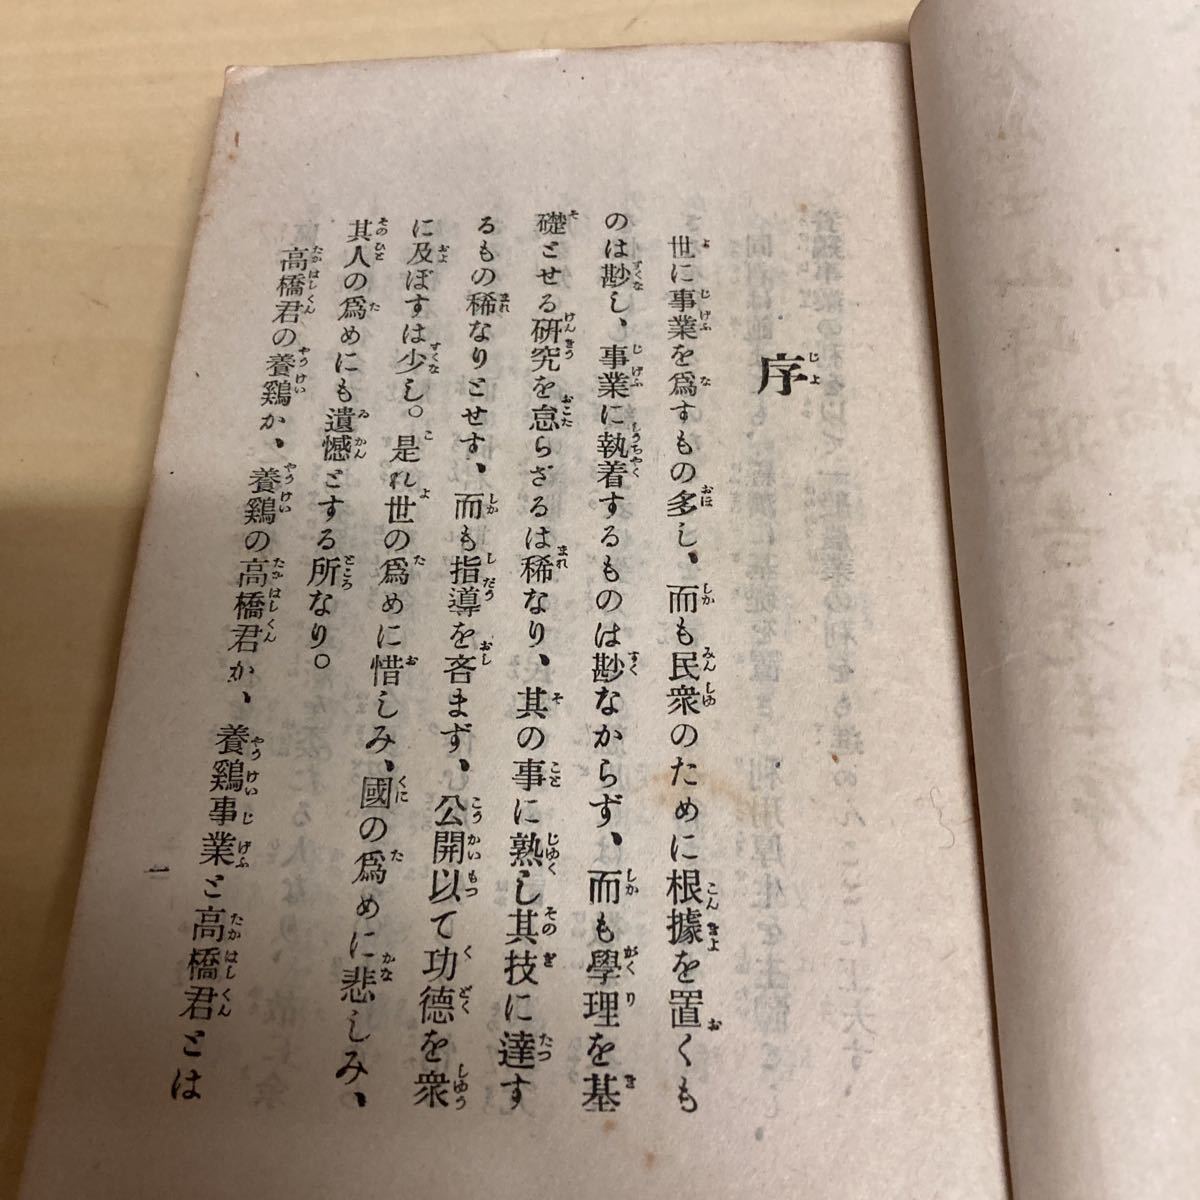 序
世に事業を爲すもの多し、而も民衆のために根據を置くも
のは尠し、事業に執着するものは尠なからず、而も學理を基
礎とせる研究を怠らざるは稀なり、其の事に熟し其技に達す
るもの稀なりとせす、而も指導を吝まず、公開以て功德を衆
に及ぼすは少し。是れ世の爲めに惜しみ、國の爲めに悲しみ、
其人の爲めにも遺憾とする所なり。
高橋君の養鷄か、養鷄の高橋君か、養鷄事業と高橋君とは
一